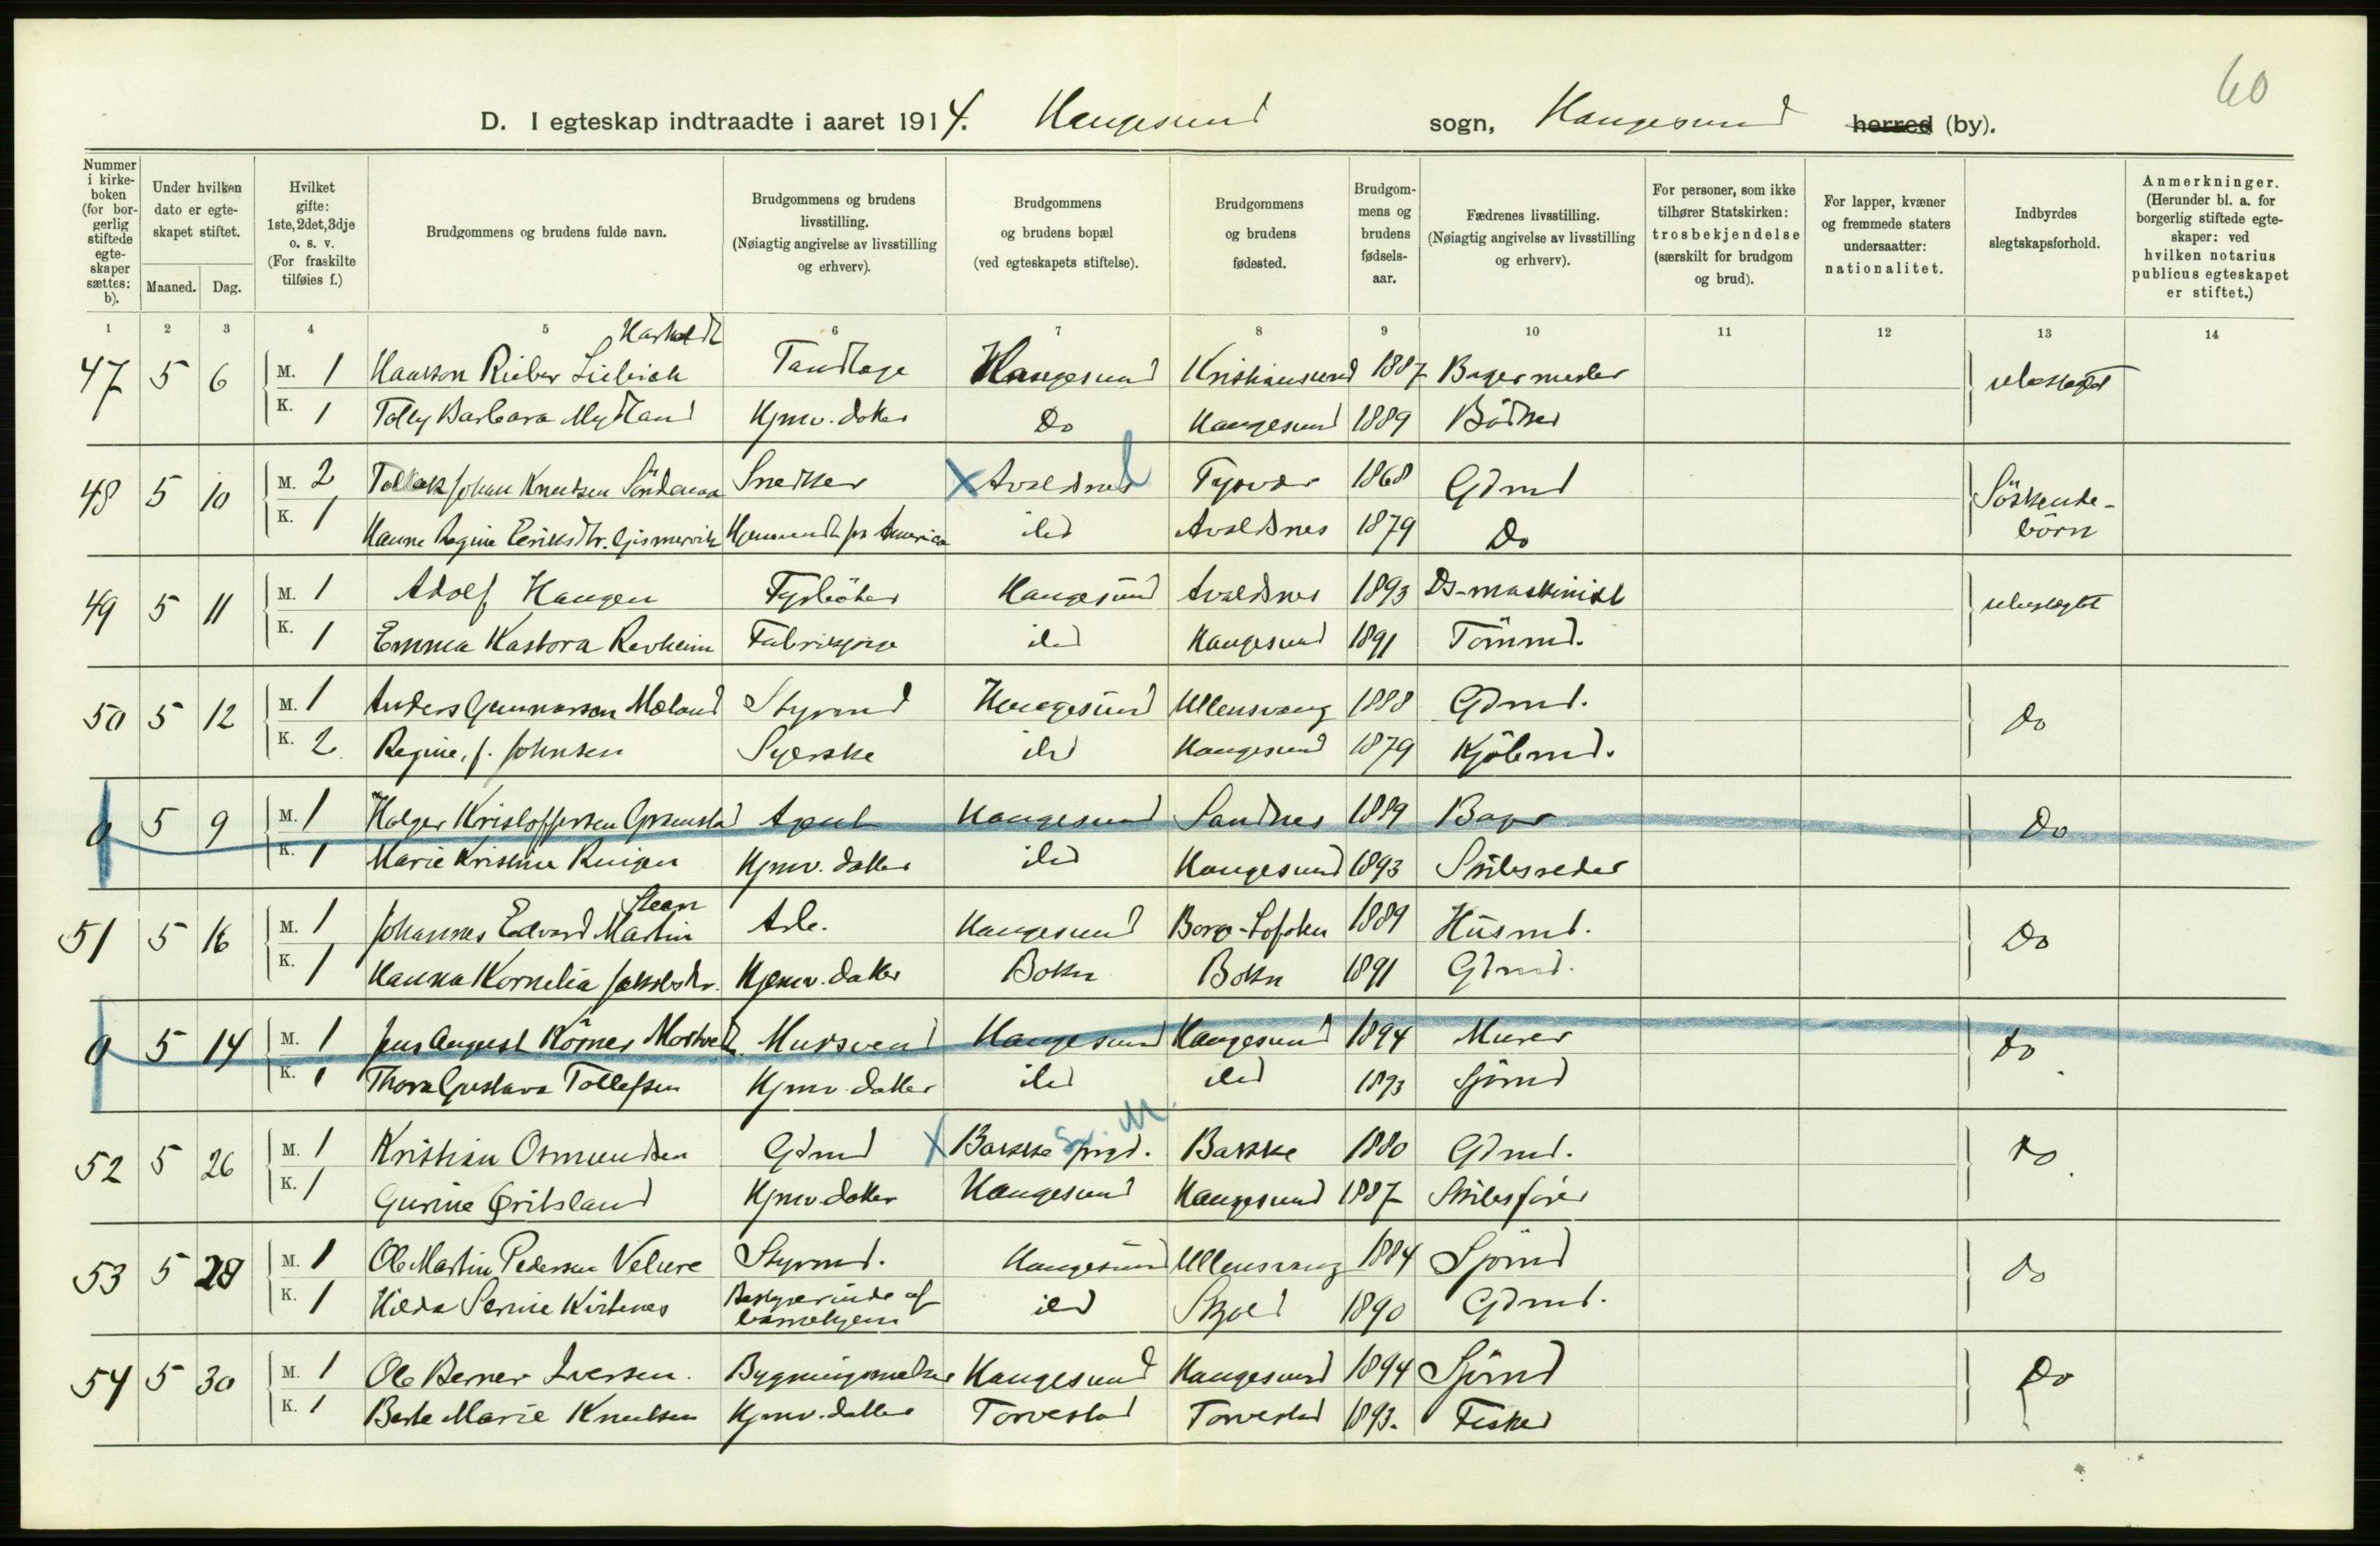 60
D. I egteskap indtraadte i aaret 1914. Haugesund sogn, Haugesund herred (by).
Nummer i kirkeboken (for borgerlig stiftede egteskaper sættes: b).
Under hvilken dato er egteskapet stiftet.
Maaned. Dag.
Hvilket gifte: 1ste, 2det, 3dje o. s. v. (For fraskilte tilføies f.)
Brudgommens og brudens fulde navn.
Brudgommens og brudens livsstilling. (Nøiagtig angivelse av livsstilling og erhverv).
Brudgommens og brudens bopæl (ved egteskapets stiftelse).
Brudgommens og brudens fødested.
Brudgommens og brudens fødselsaar.
Fædrenes livsstilling. (Nøiagtig angivelse av livsstilling og erhverv).
For personer, som ikke tilhører Statskirken: trosbekjendelse (særskilt for brudgom og brud).
For lapper, kvæner og fremmede staters undersaatter: nationalitet.
Indbyrdes slegtskapsforhold.
Anmerkninger. (Herunder bl. a. for borgerlig stiftede egteskaper: ved hvilken notarius publicus egteskapet er stiftet.)
1 2 3 4 5 6 7 8 9 10 11 12 13 14
47 5 6 M. 1 Haakon Rieber Tandlæge Haugesund Kristiansund 1887 Bagermester ubeslegtet
K. 1 Tolly Barbara Mydland Hjmv. datter Do Haugesund 1889 Bödker
48 5 10 M. 2 Tollak Johan Knudsen Söndenaa Snedker X Avaldsnes Tysvær 1868 Gdmd Söskendebörn
K. 1 Hanne Regine Eriksdtr. Gismervik Hjemvendt fra America ibd Avaldsnes 1879 Do
49 5 11 M. 1 Adolf Haugen Fyrböter Haugesund Avaldsnes 1893 Ds-maskinist ubeslegtet
K. 1 Emma Kastora Revheim Fabrikpige ibd Haugesund 1891 Tömmd.
50 5 12 M. 1 Anders Gunnarson Møland Styrmd Haugesund Ullensvang 1888 Gdmd. Do
K. 2 Regine, f. Johnsen Syerske ibd Haugesund 1879 Kjöbmd.
0 5 9 M. 1 Holger Kristoffersen Agent Haugesund Sandnes 1889 Bager Do
K. 1 Marie Kristine Hjmv. datter ibd Haugesund 1893 Skibsreder
51 5 16 M. 1 Johannes Edvard Martin Steen Arb. Haugesund Borge-Lofoten 1889 Husmd. Do
K. 1 Hanna Kornelia Jakobsdtr. Hjemv. datter Bokn Bokn 1891 Gdmd.
0 5 14 M. 1 Jens August Körner Mursvend Haugesund Haugesund 1894 Murer Do
K. 1 Thora Gustava Tollefsen Hjmv. datter ibd ibd 1893 Sjömd
52 5 26 M. 1 Kristian Osmundsen Gdmd X Bakke prgd. Bakke 1880 Gdmd. Do
K. 1 Gurine Gritsland Hjmv. datter Haugesund Haugesund 1887 Skibsförer
53 5 28 M. 1 Ole Martin Pedersen Velure Styrmd. Haugesund Ullensvang 1884 Sjömd Do
K. 1 Hilda Serine Bestyrerinde af barnehjem ibd Skjold 1890 Gdmd.
54 5 30 M. 1 Ole Berner Iversen. Haugesund Haugesund 1894 Sjömd Do
K. 1 Berte Marie Knutsen Hjmv. datter Torvestad Torvestad 1893. Fisker